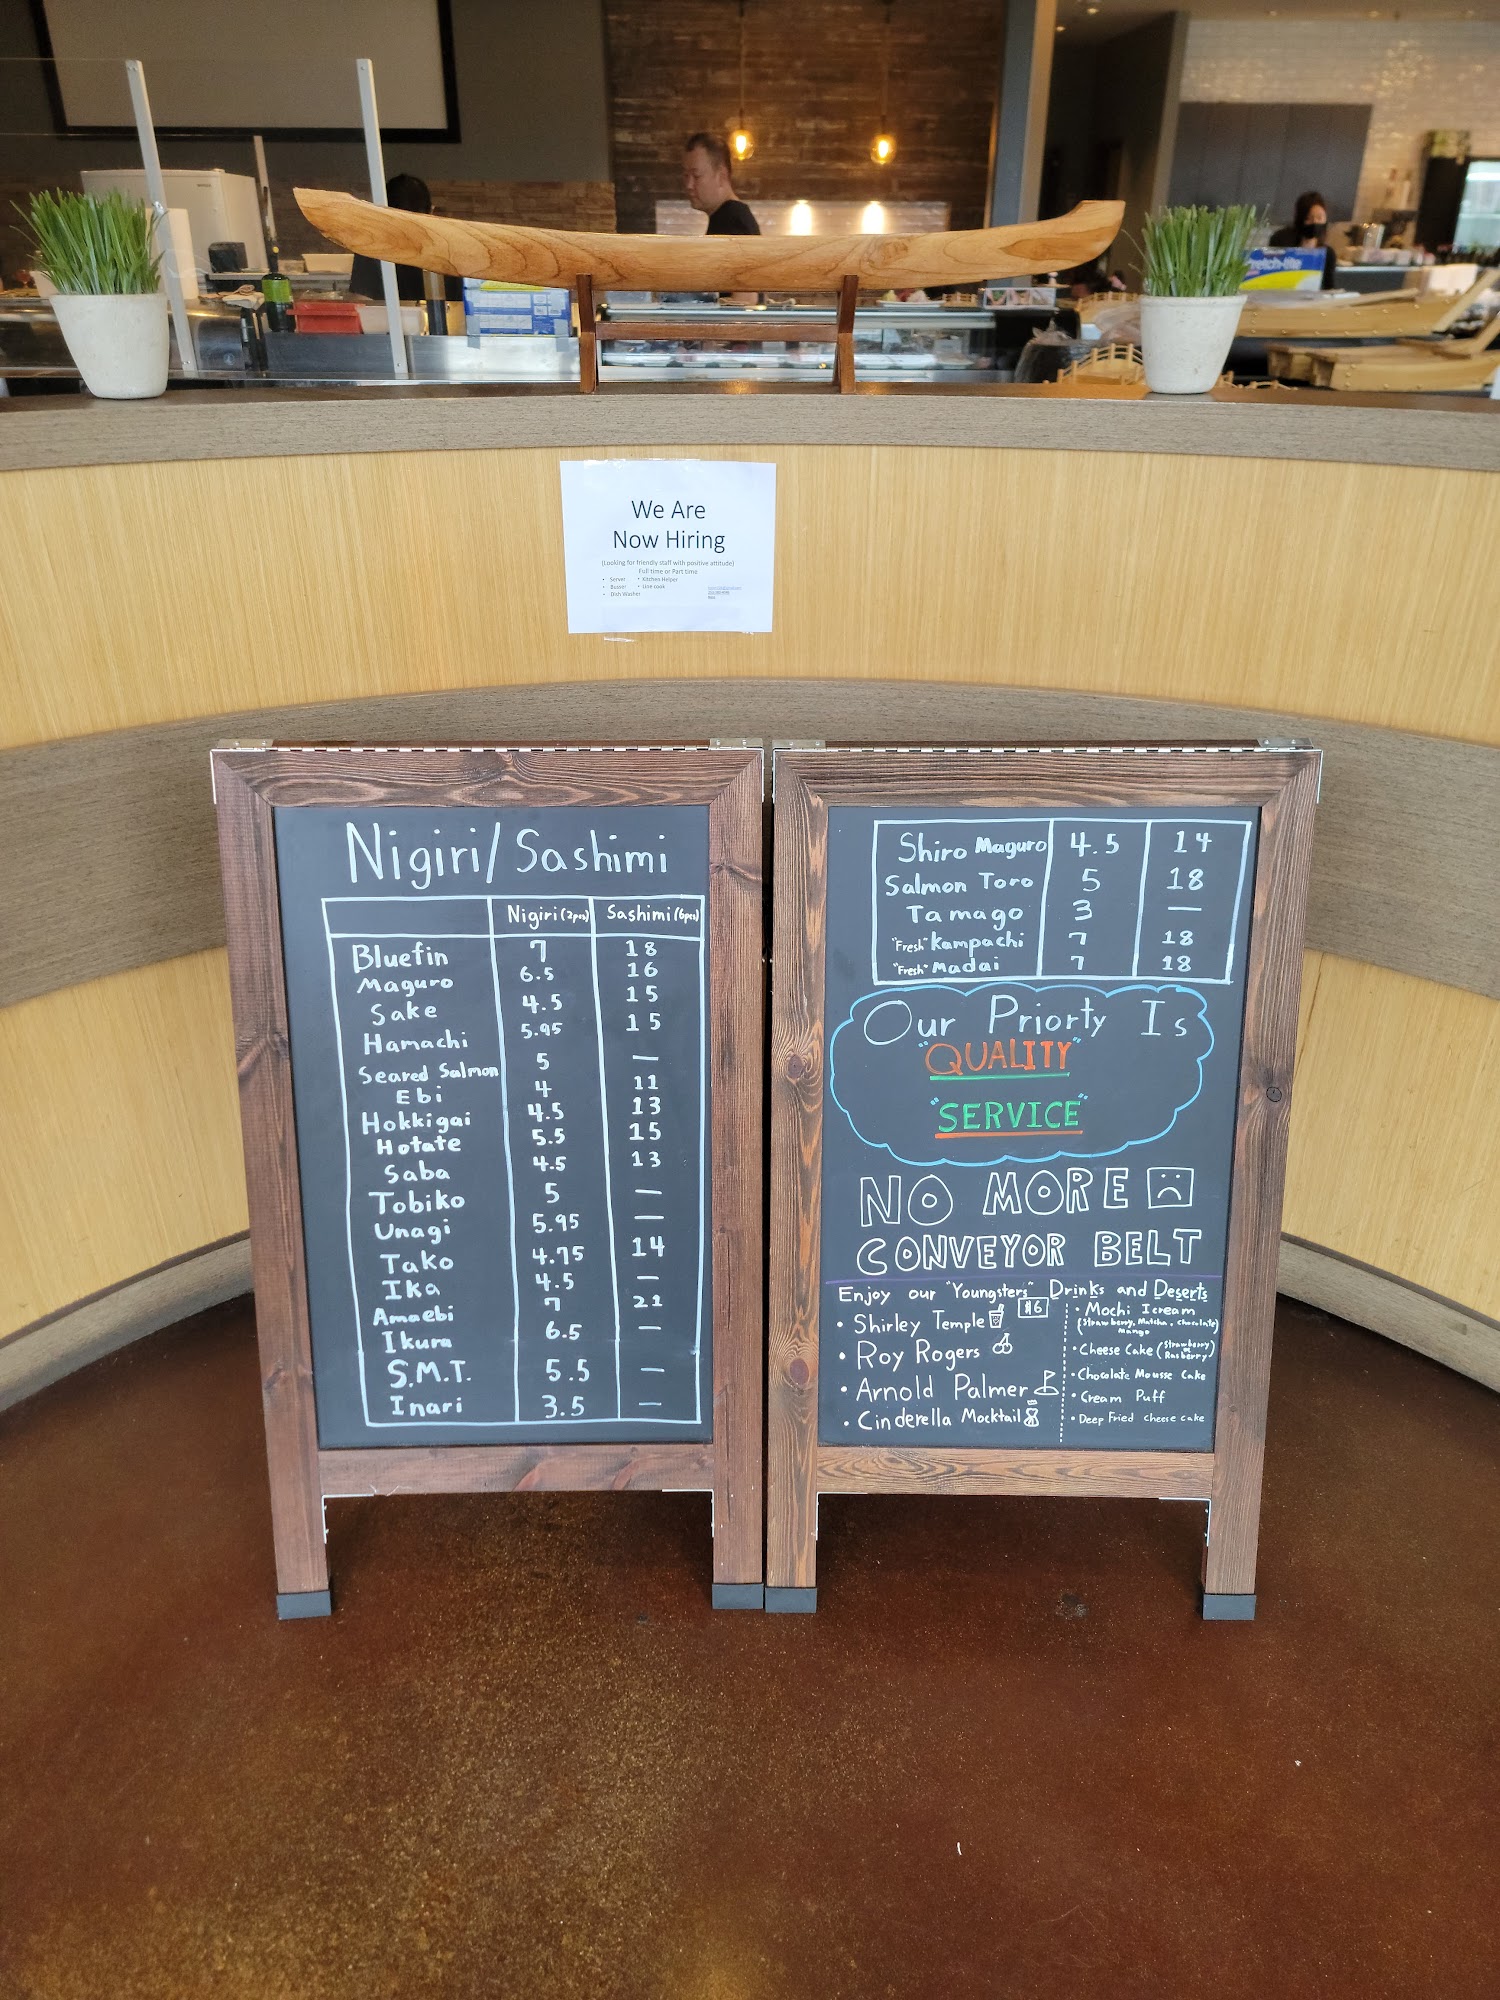 We Are
Now Hiring
(Looking for friendly staff with positive attitude)
Full time or Part time
• Server • Kitchen Helper
• Busser • Line cook
• Dish Washer
Nigiri/Sashimi
Nigiri (2pcs) Sashimi (6pcs)
Bluefin 7 18
Maguro 6.5 16
Sake 4.5 15
Hamachi 5.95 15
Seared Salmon 5 —
Ebi 4 11
Hokkigai 4.5 13
Hotate 5.5 15
Saba 4.5 13
Tobiko 5 —
Unagi 5.95 —
Tako 4.75 14
Ika 4.5 —
Amaebi 7 21
Ikura 6.5 —
S.M.T. 5.5 —
Inari 3.5 —
Shiro Maguro 4.5 14
Salmon Toro 5 18
Tamago 3 —
"Fresh" Kampachi 7 18
"Fresh" Madai 7 18
Our Priorty Is
"QUALITY"
"SERVICE"
NO MORE
CONVEYOR BELT
Enjoy our "Youngsters" Drinks and Deserts
$6
• Shirley Temple
• Roy Rogers
• Arnold Palmer
• Cinderella Mocktail
• Mochi Icream
(Strawberry, Matcha, chocolate)
Mango
• Cheese Cake (Strawberry or Rasberry)
• Chocolate Mousse Cake
• Cream Puff
• Deep Fried cheese cake